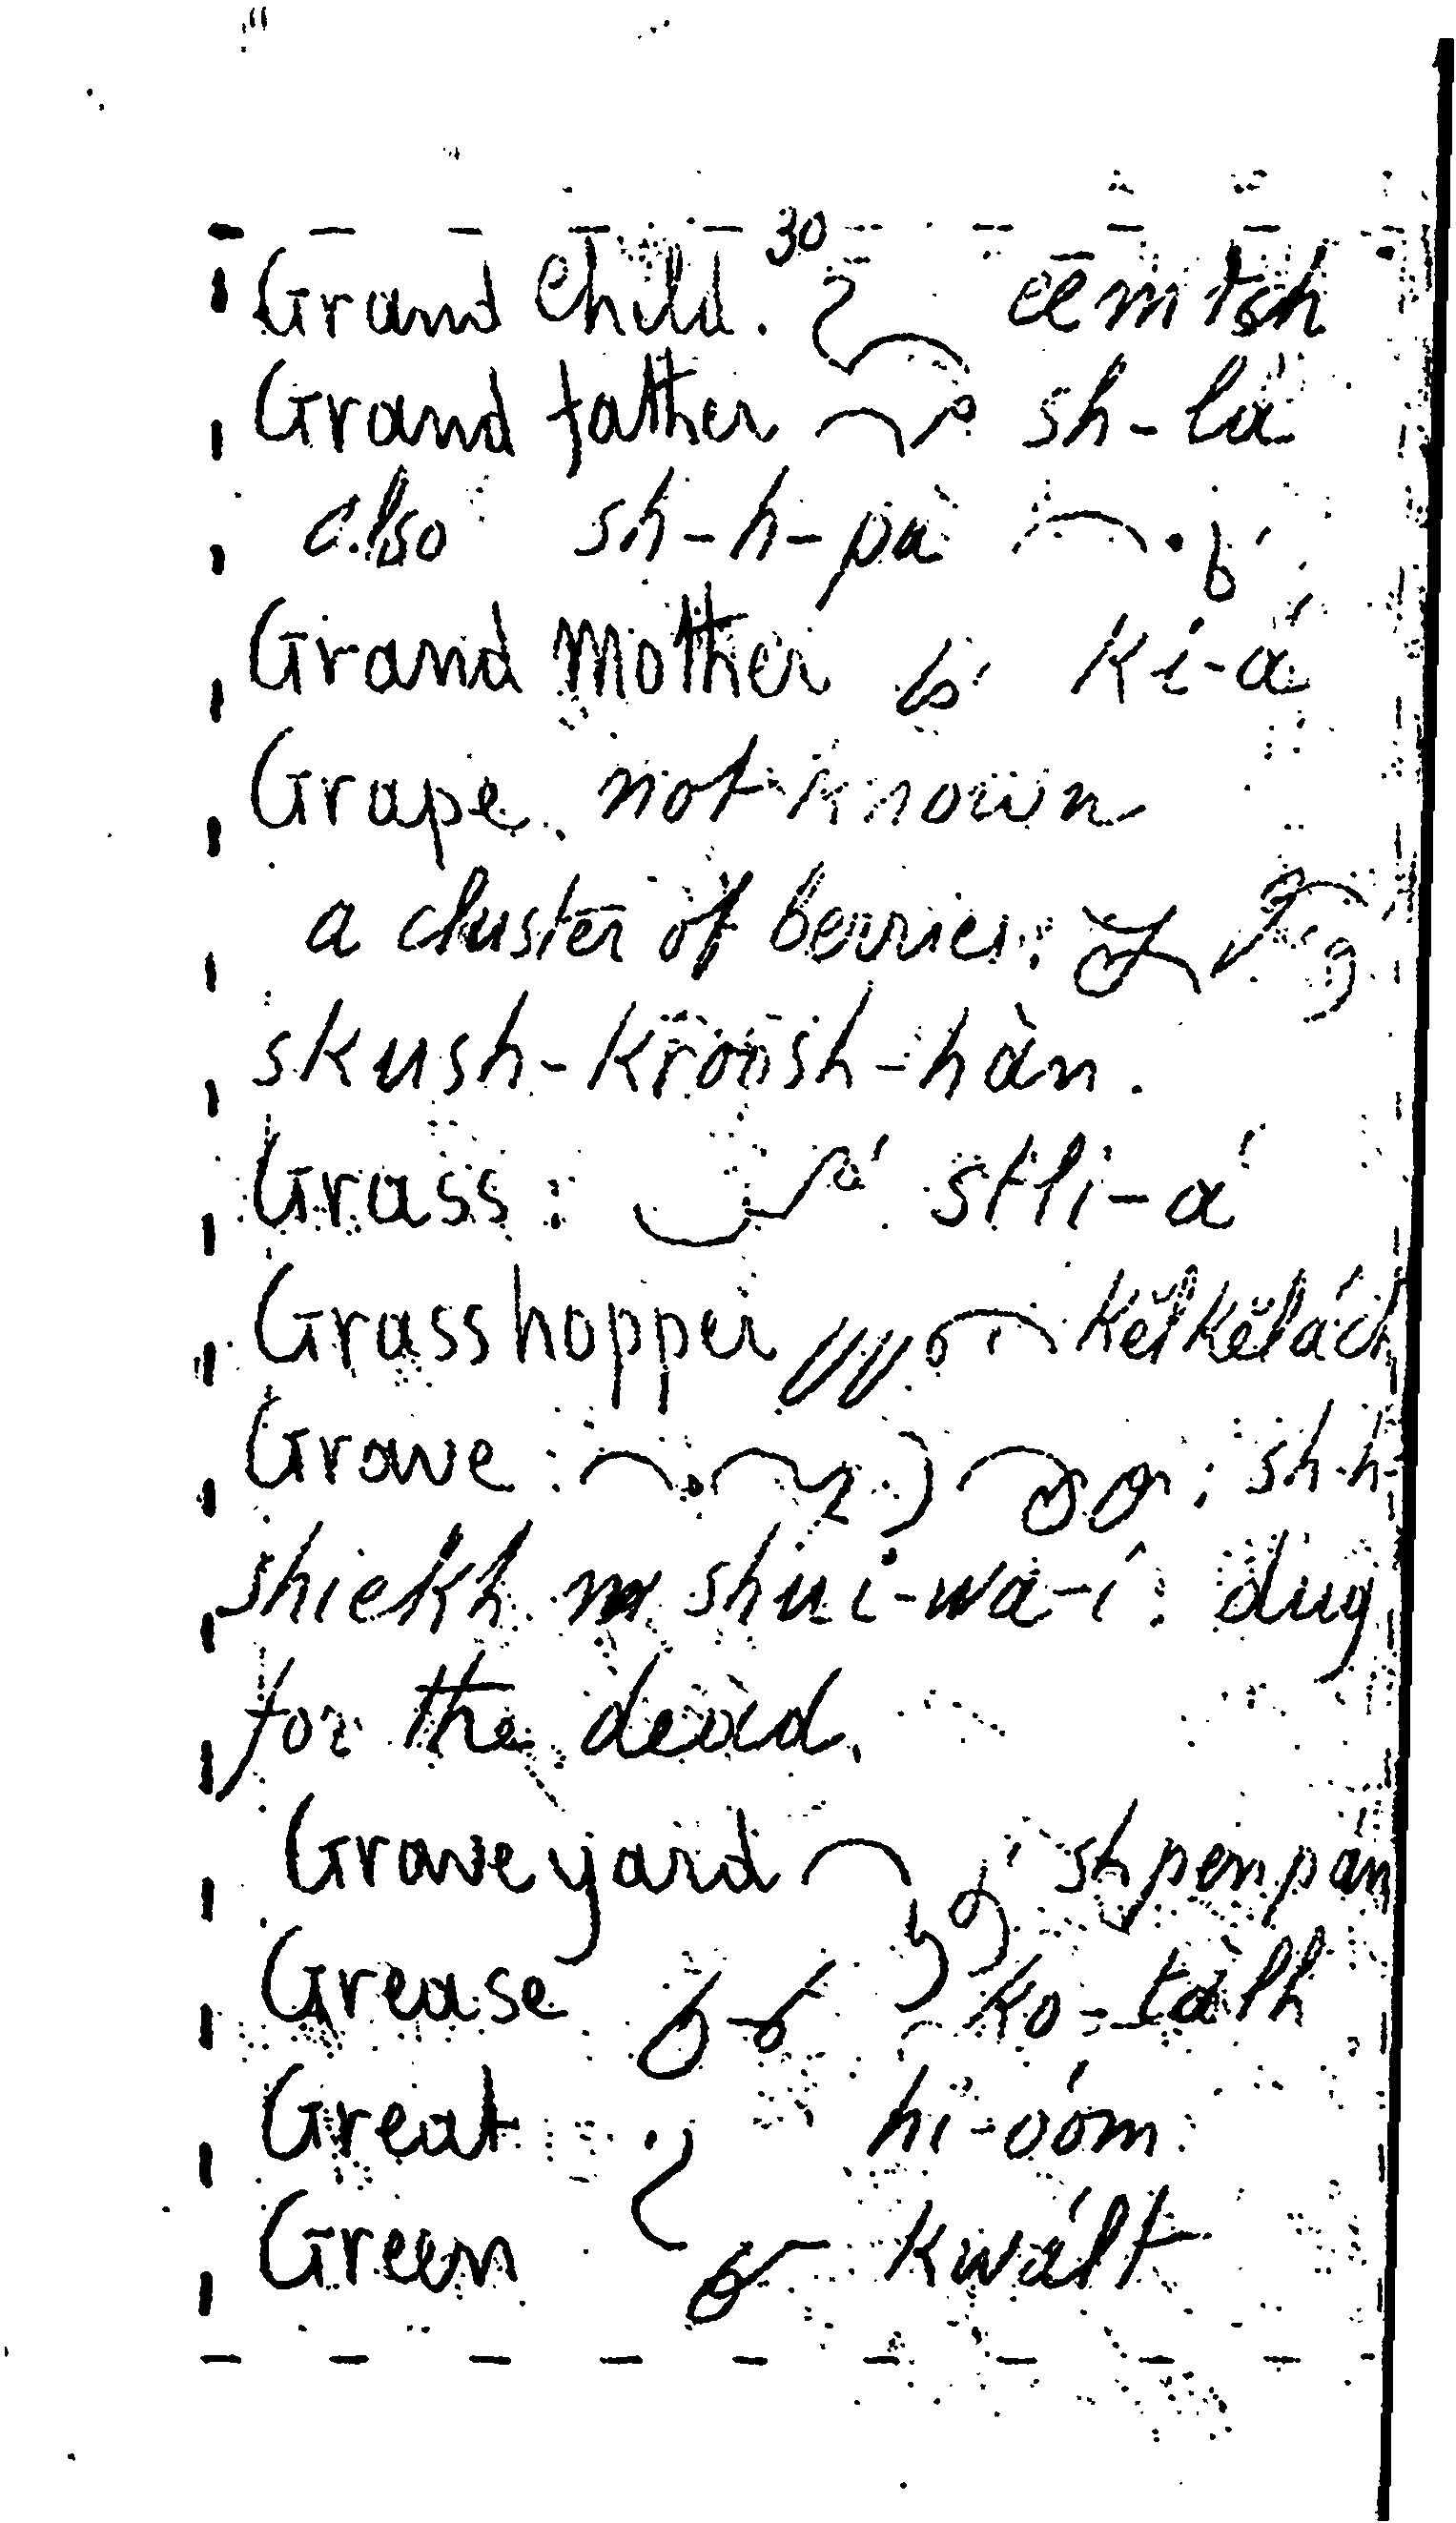 30
Grand Child. eemtsh
Grand father sh-lá
also sh-h-pà
Grand Mother ki-á
Grape. not known
a cluster of berries:
skush-kroosh-hàn.
Grass: stli-á
Grasshopper kĕlkĕlách
Grave: ; sh-h-
shiekh m shui-wa-í: dug
for the dead.
Grave yard shpenpán
Grease ko-tàlh
Great hi-oóm
Green kwált